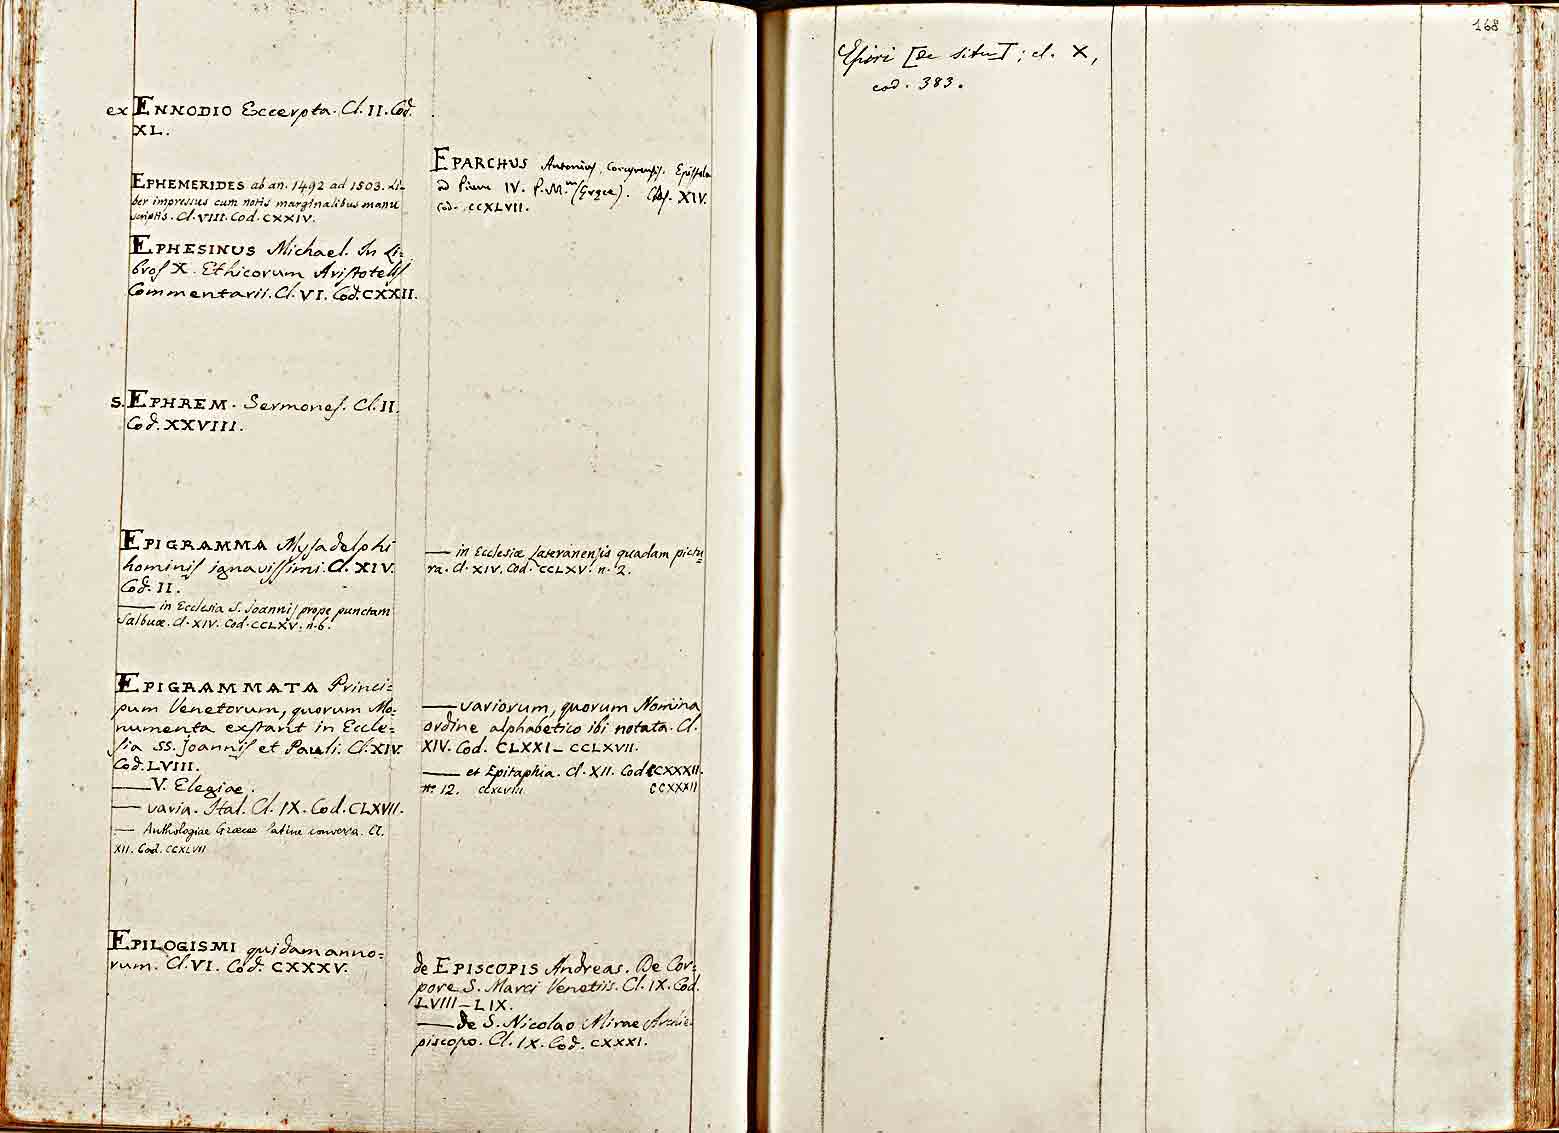 ex ENNODIO Excerpta. Cl. II. Cod.
XL.
EPHEMERIDES ab an. 1492 ad 1503. Li-
ber impressus cum notis marginalibus manu
scriptis. Cl. VIII. Cod. CXXIV.
EPHESINUS Michael. In Li=
bros X. Ethicorum Aristotelis
Commentarii. Cl. VI. Cod. CXXII.
S. EPHREM. Sermones. Cl. II.
Cod. XXVIII.
EPIGRAMMA Mysadelphi
hominis ignavissimi. Cl. XIV.
Cod. II.
— in Ecclesia S. Joannis prope punctam
Salbuæ. Cl. XIV. Cod. CCLXV. n. 6.
EPIGRAMMATA Princi=
pum Venetorum, quorum Mo=
numenta exstant in Eccle=
sia SS. Joannis et Pauli. Cl. XIV.
Cod. LVIII.
— V. Elegiae.
— varia. Ital. Cl. IX. Cod. CLXVII.
— Anthologiae Graecae latine conversa. Cl.
XII. Cod. CCXLVII
EPILOGISMI quidam anno=
rum. Cl. VI. Cod. CXXXV.
EPARCHUS Antonius, Corcyrensis. Epistola
ad Pium IV. P. M.m (Græce). Clas. XIV.
Cod. CCXLVII.
— in Ecclesiæ Lateranensis quadam pictu
ra. Cl. XIV. Cod. CCLXV. n. 2.
— variorum, quorum Nomina
ordine alphabetico ibi notata. Cl.
XIV. Cod. CLXXI – CCLXVII.
— et Epitaphia. Cl. XII. Cod. CCXXXII.
n.º 12. CCXLVIII CCXXXII
de EPISCOPIS Andreas. De Cor=
pore S. Marci Venetiis. Cl. IX. Cod.
LVIII – LIX.
— de S. Nicolao Mirae Archie
piscopo. Cl. IX. Cod. CXXXI.
168
Epiri [De situ]; cl. X,
cod. 383.